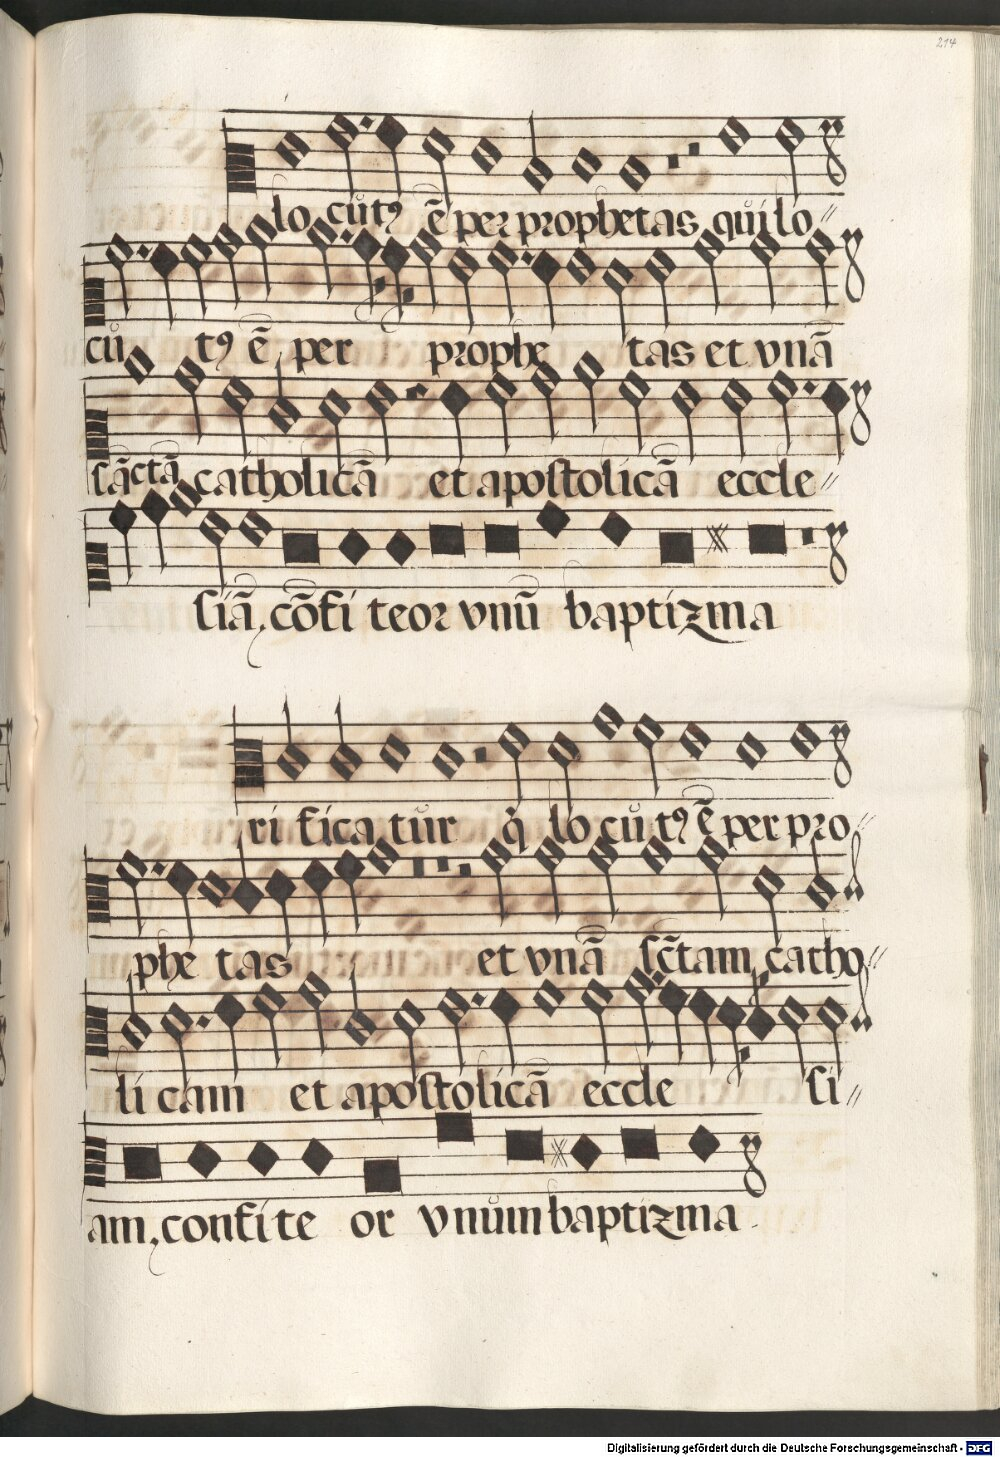 214
lo cut9 ē per prophetas qui lo〃
cu t9 ē per prophe tas et vnā
sāctā catholicā et apostolicā eccle〃
siā, cōfi teor vnū baptizma
ri fica tur q̇ lo cu t9 ē per pro〃
phe tas et vnā sc̄tam catho〃
li cam et apostolicā eccle si〃
am, confi te or vnum baptizma .
Digitalisierung gefördert durch die Deutsche Forschungsgemeinschaft - DFG